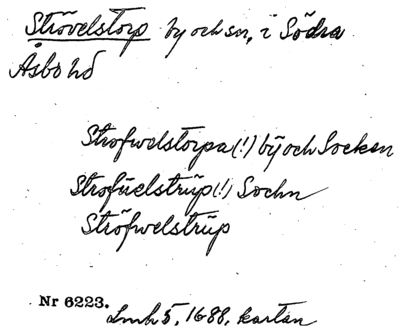 Strövelstorp by och sn, i Södra
Åsbo hd
Strofwelstorpa (!) bÿ och Socken
Strofüelstrüp (!) Sochn
Ströfwelstrüp
Nr 6223.
Lmh 5, 1688, kartan